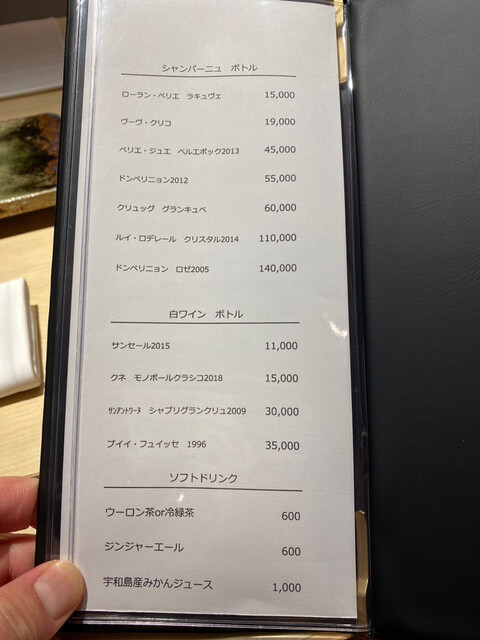 シャンパーニュ ボトル
ローラン・ペリエ ラキュヴェ 15,000
ヴーヴ・クリコ 19,000
ペリエ・ジュエ ベルエポック2013 45,000
ドンペリニョン2012 55,000
クリュッグ グランキュベ 60,000
ルイ・ロデレール クリスタル2014 110,000
ドンペリニョン ロゼ2005 140,000
白ワイン ボトル
サンセール2015 11,000
クネ モノポールクラシコ2018 15,000
ｻﾝｱﾝﾄﾜｰﾇ シャブリグランクリュ2009 30,000
プイイ・フュイッセ 1996 35,000
ソフトドリンク
ウーロン茶or冷緑茶 600
ジンジャーエール 600
宇和島産みかんジュース 1,000